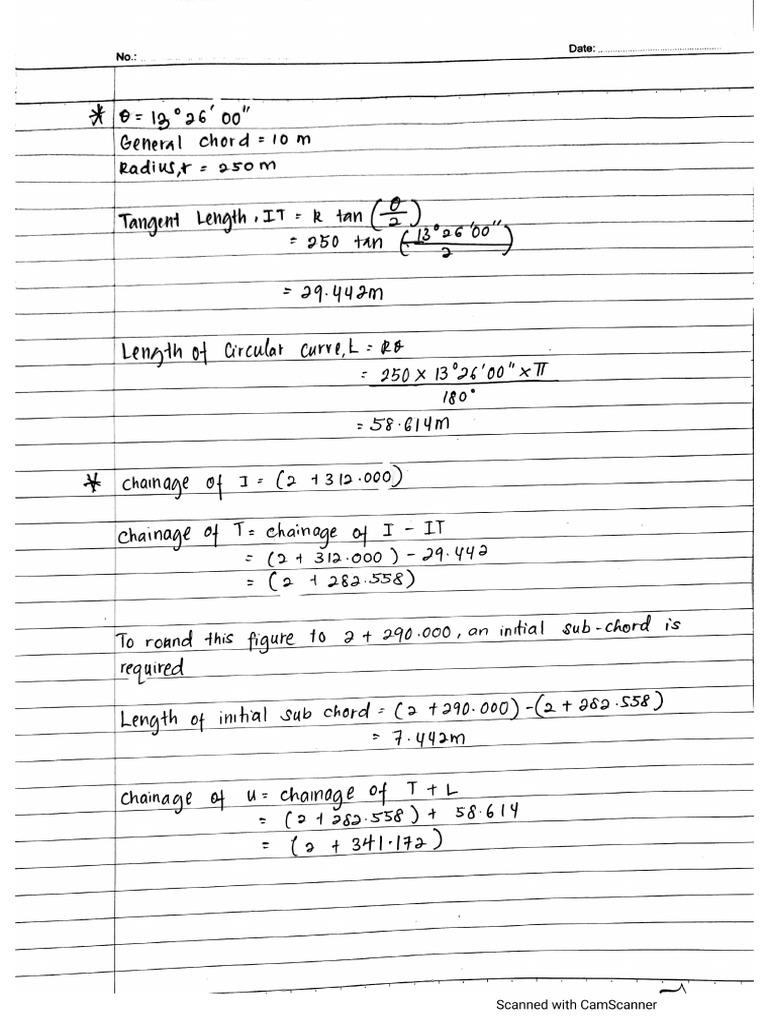 No.:
Date:
* θ = 13°26'00"
General chord = 10 m
Radius, r = 250m
Tangent Length, IT = R tan (θ/2)
= 250 tan (13°26'00"/2)
= 29.442m
Length of Circular Curve, L = Rθ
= 250 × 13°26'00" × π
180°
= 58.614m
* Chainage of I = (2 + 312.000)
Chainage of T = chainage of I - IT
= (2 + 312.000) - 29.442
= (2 + 282.558)
To round this figure to 2 + 290.000, an initial sub-chord is
required
Length of initial sub chord = (2 + 290.000) - (2 + 282.558)
= 7.442m
Chainage of U = chainage of T + L
= (2 + 282.558) + 58.614
= (2 + 341.172)
Scanned with CamScanner